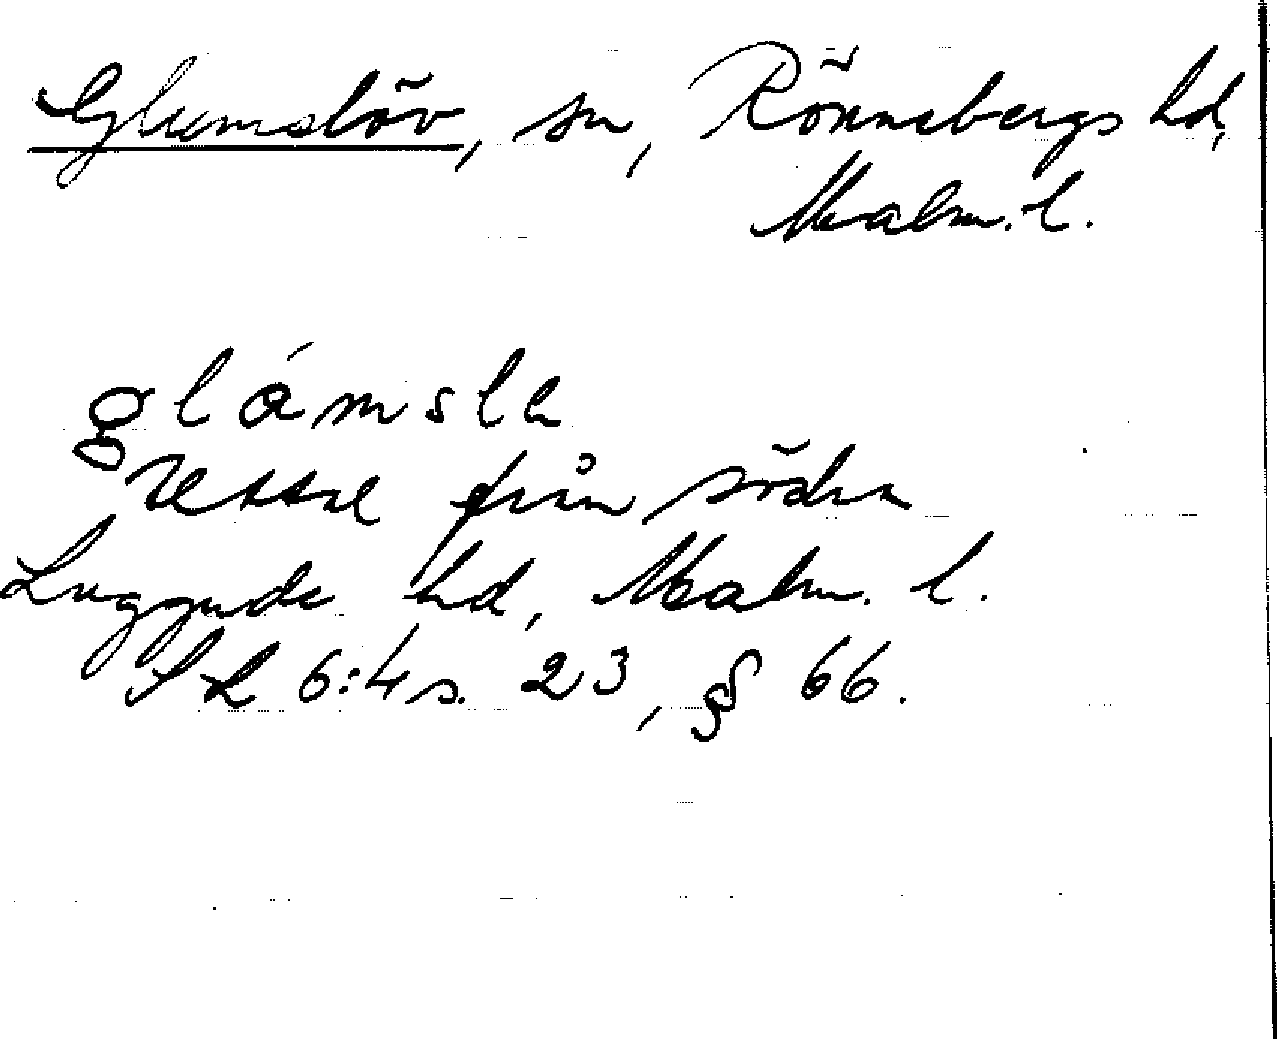 Glumslöv, sn, Rönnebergs hd,
Malm. l.
glámsle
uttal från södra
Luggude hd, Malm. l.
SL 6:4 s. 23, § 66.